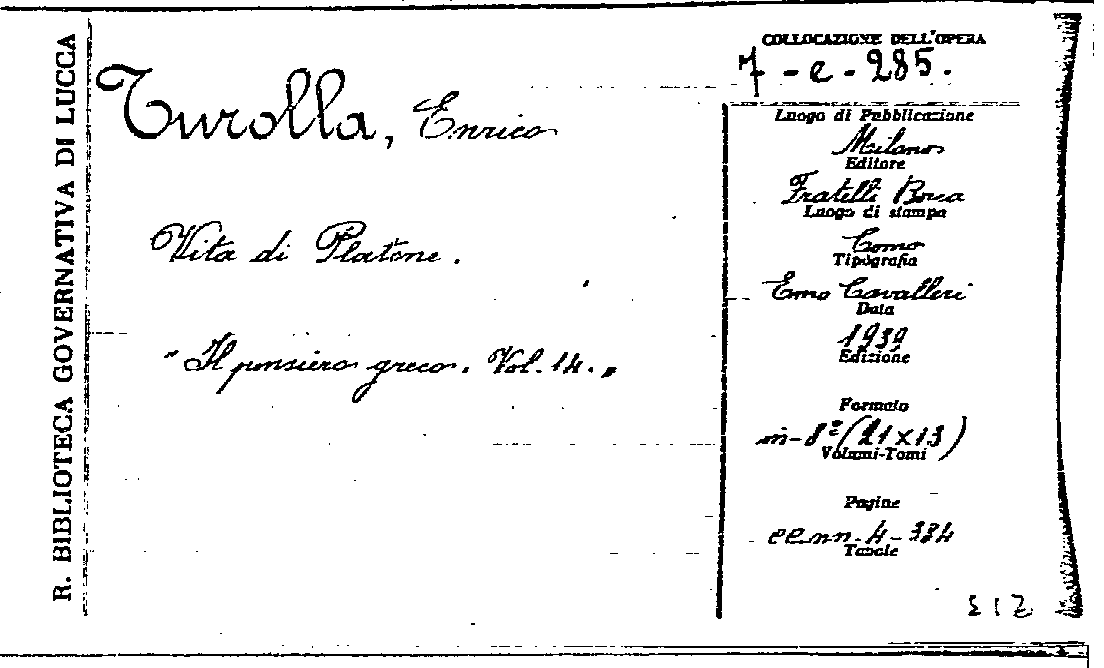 R. BIBLIOTECA GOVERNATIVA DI LUCCA
Turolla, Enrico
Vita di Platone.
"Il pensiero greco. Vol. 14."
COLLOCAZIONE DELL'OPERA
7-e-285.
Luogo di Pubblicazione
Milano
Editore
Fratelli Bocca
Luogo di stampa
Como
Tipografia
Emo Cavalleri
Data
1939
Edizione
Formato
in-8º (21x13)
Volumi-Tomi
Pagine
cc.nn. 4-384
Tavole